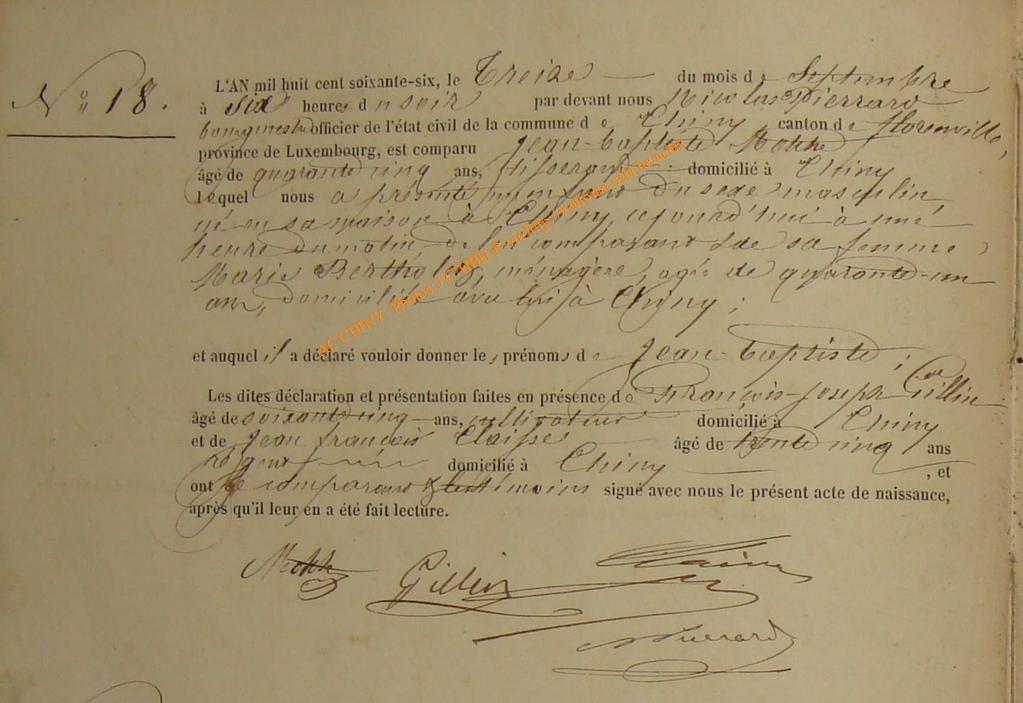 N° 18.
L'AN mil huit cent soixante-six, le Treize du mois de Septembre
à Six heures du soir par devant nous Nicolas Pierrard
bourgmestre officier de l'état civil de la commune de Chiny canton de florenville,
province de Luxembourg, est comparu Jean-baptiste
âgé de quarante cinq ans, tisserand domicilié à Chiny
lequel nous a présenté un enfant du sexe masculin,
né en sa maison à Chiny, cejourd'hui à une
heure du matin, de lui comparant & de sa femme
Marie Bertholet, ménagère, agée de quarante-un
ans, domiciliée avec lui à Chiny;
et auquel il a déclaré vouloir donner les prénoms de Jean-baptiste;
Les dites déclaration et présentation faites en présence de François-Joseph Gillin
âgé de soixante cinq ans, cultivateur domicilié à Chiny
et de Jean françois Claisse âgé de trente cinq ans
domicilié à Chiny, et
ont le comparant & les témoins signé avec nous le présent acte de naissance,
après qu'il leur en a été fait lecture.
Gillin
NPierrard